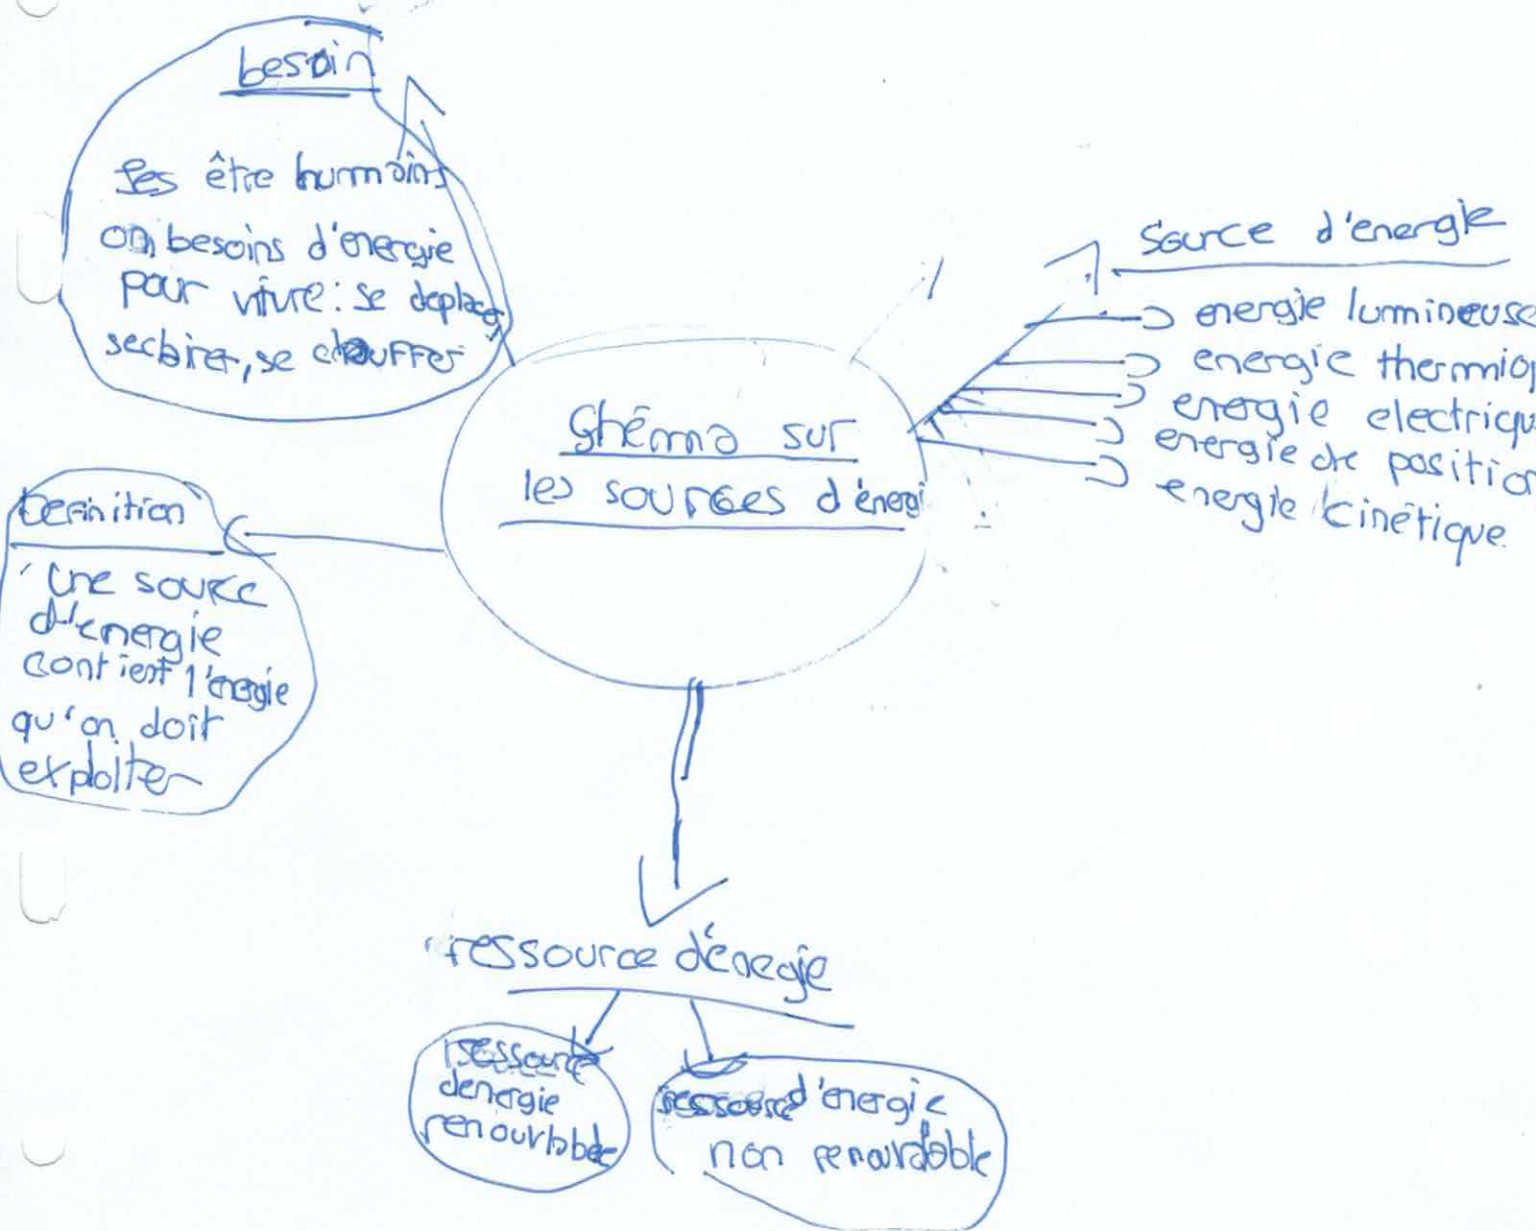 besoin
les être humains
on besoins d'energie
pour vivre: se deplacer
seclairer, se chauffer
Source d'energie
energie lumineuse
energie thermiq
energie electriqu
energie de position
energie kinétique
Shéma sur
les sources d'énergi
Definition
une source
d'energie
contient l'énergie
qu'on doit
exploiter
ressource d'énegie
ressource
denergie
renouvlable
ressource d'énergie
non renouvlable